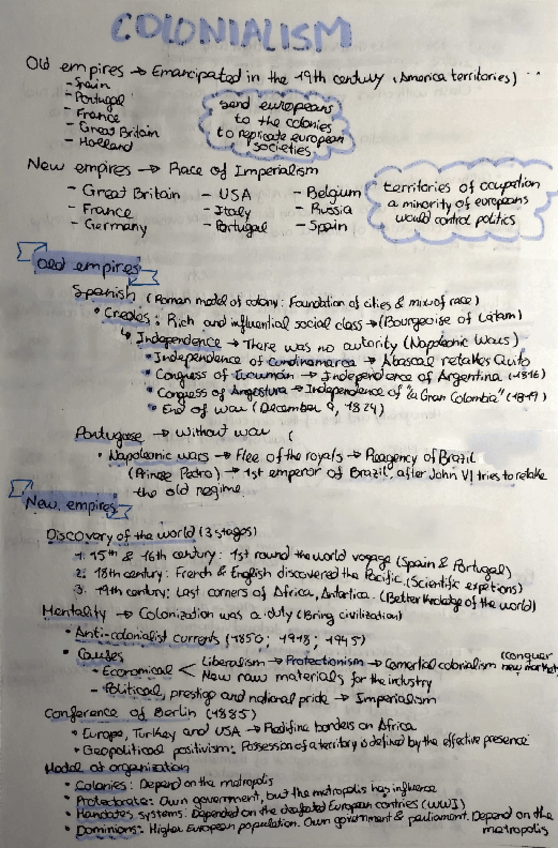 COLONIALISM
Old empires → Emancipated in the 19th century (America territories)
- Spain
- Portugal
- France
- Great Britain
- Holland
send europeans
to the colonies
to replicate european
societies
New empires → Race of Imperialism
- Great Britain - USA - Belgium
- France - Italy - Russia
- Germany - Portugal - Spain
territories of ocupation
a minority of europeans
would control politics
Old empires
Spanish (Roman model of colony: Foundation of cities & mix of race)
• Creoles: Rich and influential social class → (Bourgeoise of Latam)
↳ Independence → There was no autority (Napoleonic Wars)
• Independence of Cundinamarca → Abascal retakes Quito
• Congress of Tucumán → Independence of Argentina (1816)
• Congress of Angostura → Independence of "la Gran Colombia" (1819)
• End of war (December 9, 1824)
Portuguese → Without war (
• Napoleonic wars → Flee of the royals → Reagency of Brazil
(Prince Pedro) → 1st emperor of Brazil, after John VI tries to retake
the old regime.
New empires
Discovery of the world (3 stages)
1. 15th & 16th century: 1st round the world voyage (Spain & Portugal)
2. 18th century: French & English discovered the Pacific (Scientific expetions)
3. 19th century: Last corners of Africa, Antartica. (Better knoledge of the world)
Mentality → Colonization was a duty (Bring civilization)
• Anti-colonialist currents (1850; 1918; 1945)
• Causes
- Economical < Liberalism → Protectionism → Comertial colonialism (conquer new market)
New raw materials for the industry
- Political, prestige and national pride → Imperialism
Conference of Berlin (1885)
• Europe, Turkey and USA → Redifine borders on Africa
• Geopolitical positivism: Possession of a territory is defined by the effective presence
Model of organization
• Colonies: Depend on the metropolis
• Protectorate: Own government, but the metropolis has influence
• Mandates systems: Depended on the defeated European contries (WWI)
• Dominions: Higher European population. Own government & parliament. Depend on the
metropolis